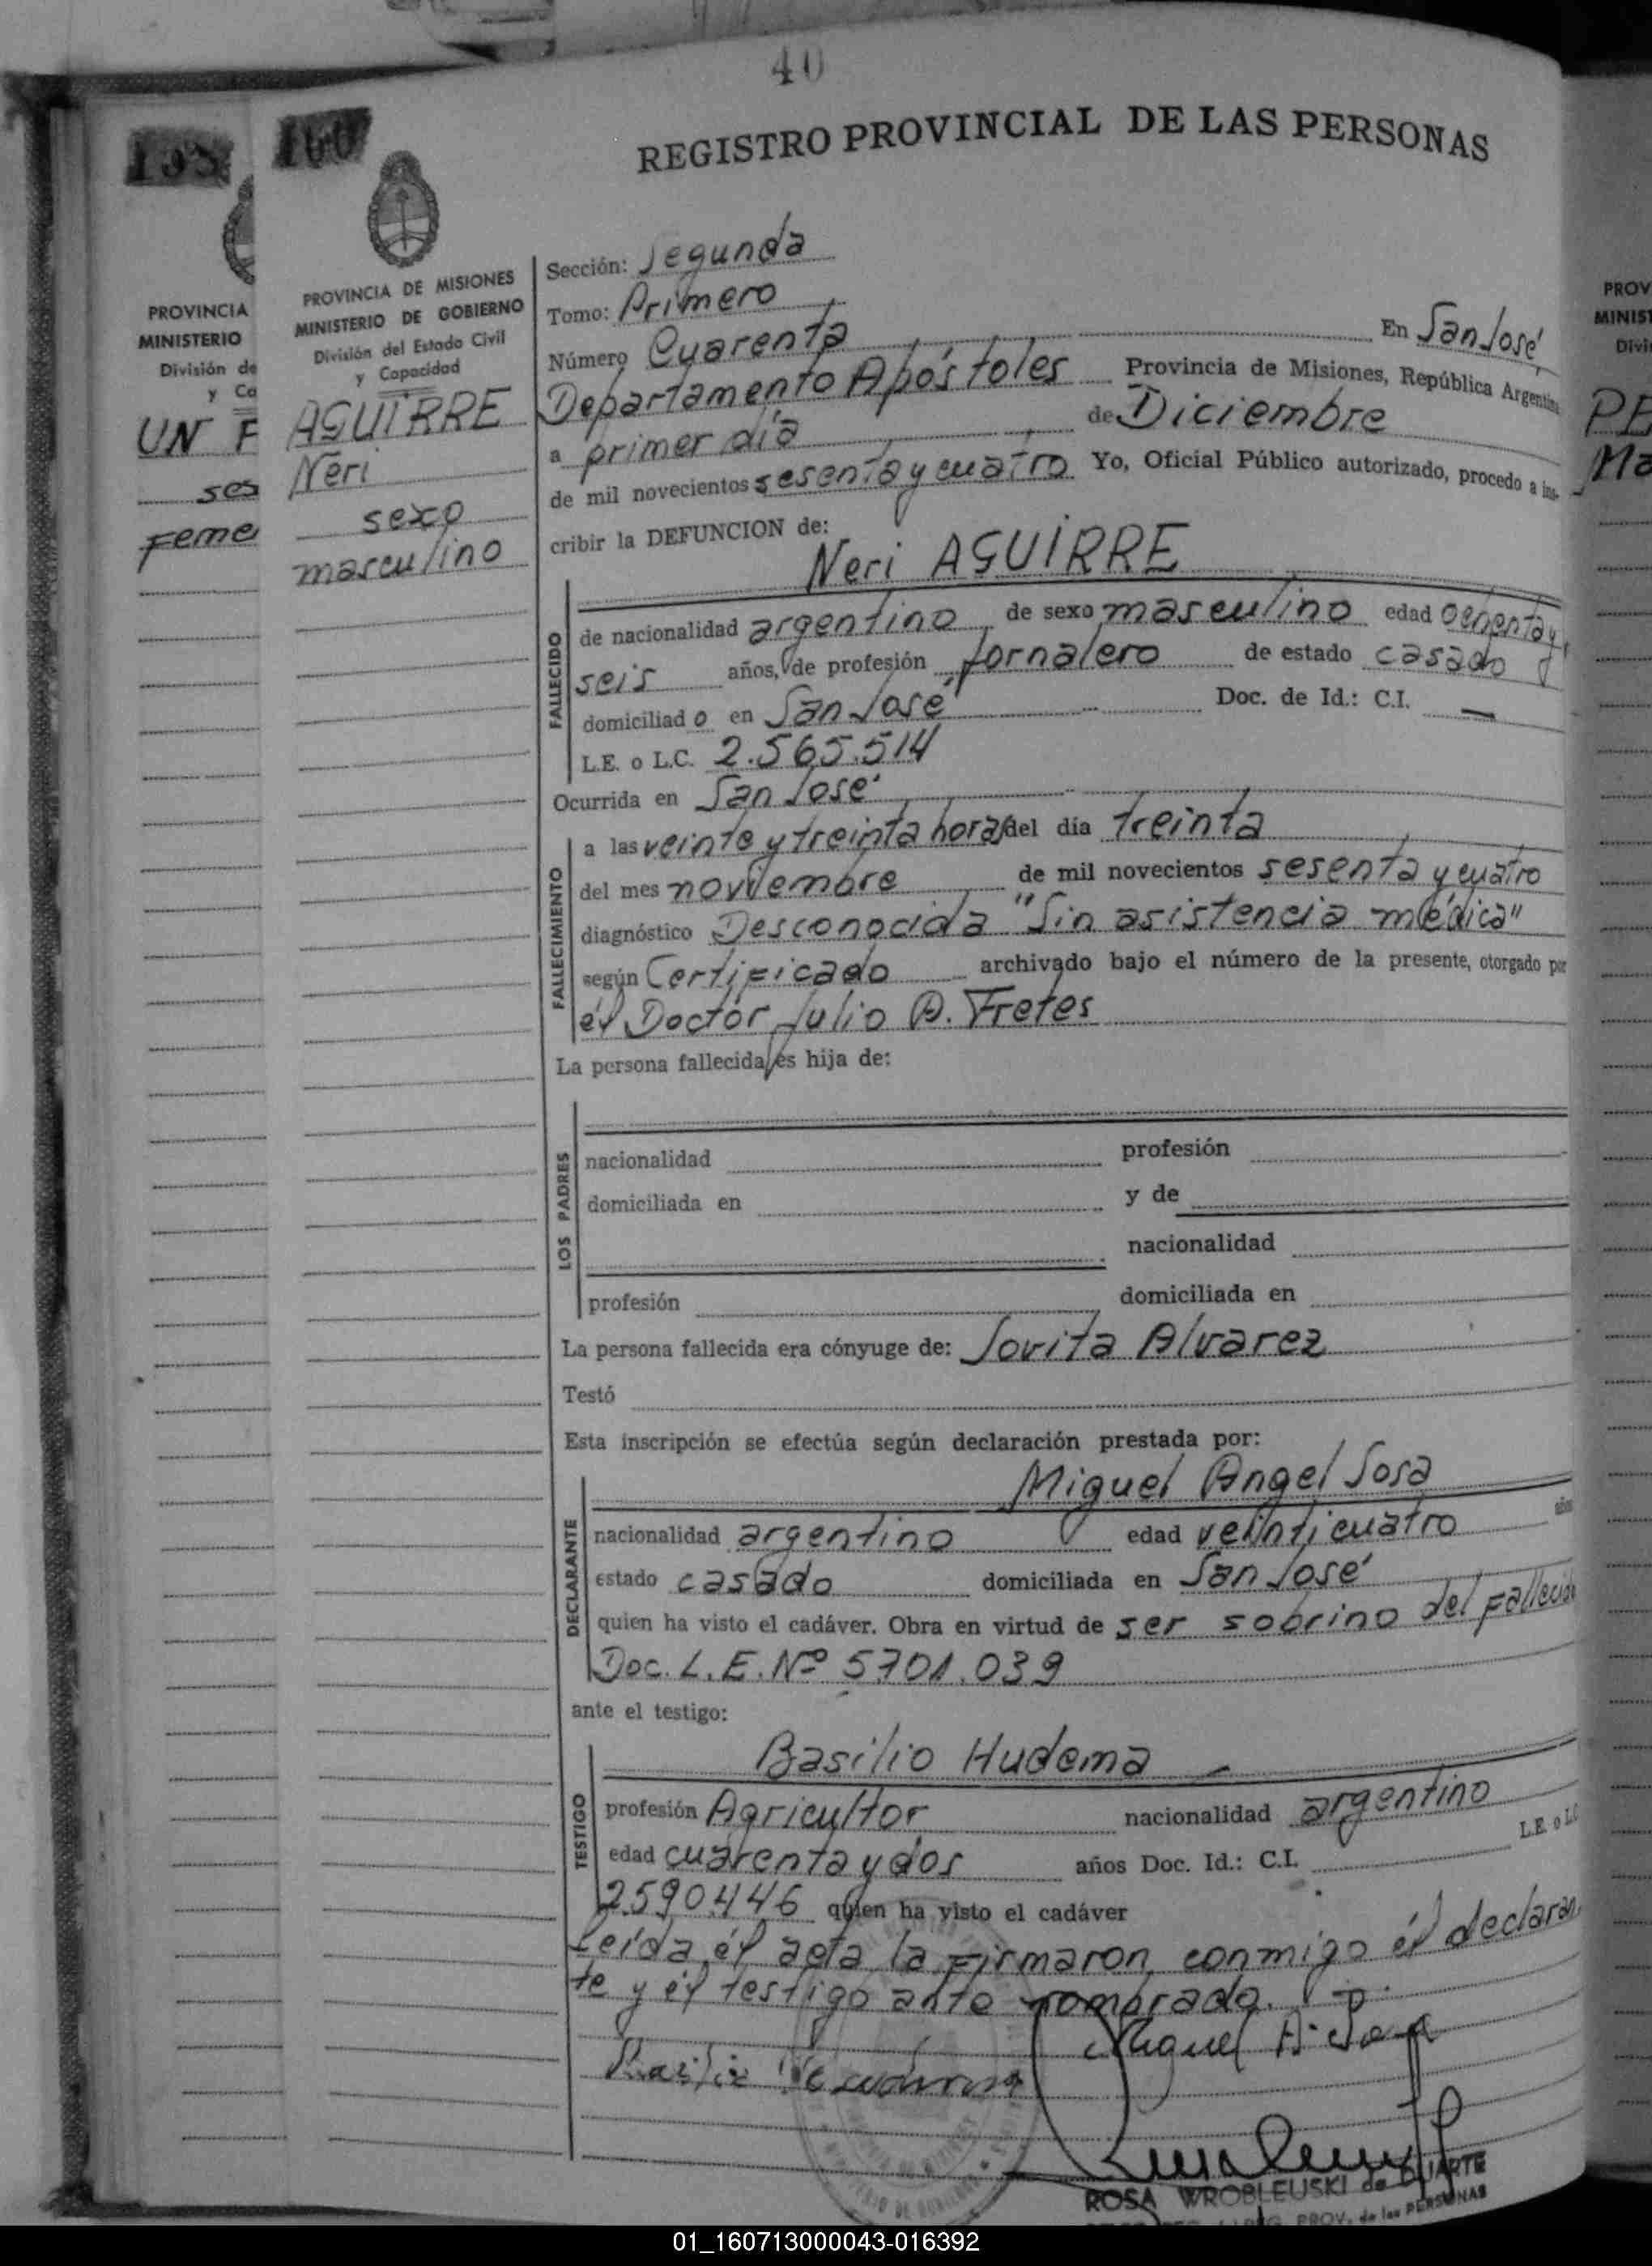 40
REGISTRO PROVINCIAL DE LAS PERSONAS
160
PROVINCIA
MINISTERIO
División de
y Ca
UN F
sex
Feme
PROVINCIA DE MISIONES
MINISTERIO DE GOBIERNO
División del Estado Civil
y Capacidad
AGUIRRE
Neri
sexo
masculino
Sección: Segunda
Tomo: Primero
Número Cuarenta En San José,
Departamento Apóstoles Provincia de Misiones, República Argentina
a primer día de Diciembre
de mil novecientos sesenta y cuatro Yo, Oficial Público autorizado, procedo a ins-
cribir la DEFUNCION de:
Neri AGUIRRE
FALLECIDO
de nacionalidad argentino de sexo masculino edad ochenta y
seis años, de profesión Jornalero de estado casado y
domiciliado en San José Doc. de Id.: C.I. —
L.E. o L.C. 2.565.514
Ocurrida en San José
FALLECIMIENTO
a las veinte y treinta horas del día treinta
del mes noviembre de mil novecientos sesenta y cuatro
diagnóstico Desconocida "Sin asistencia médica"
según Certificado archivado bajo el número de la presente, otorgado por
él Doctor Julio A. Fretes
La persona fallecida es hija de:
LOS PADRES
nacionalidad profesión
domiciliada en y de
nacionalidad
profesión domiciliada en
La persona fallecida era cónyuge de: Jovita Alvarez
Testó
Esta inscripción se efectúa según declaración prestada por:
Miguel Angel Sosa
DECLARANTE
nacionalidad argentino edad veinticuatro años
estado casado domiciliada en San José
quien ha visto el cadáver. Obra en virtud de ser sobrino del fallecido
Doc. L.E. Nº 5701.039
ante el testigo:
Basilio Hudema
TESTIGO
profesión Agricultor nacionalidad argentino
edad cuarenta y dos años Doc. Id.: C.I. L.E. o L.C
2.590.446 quien ha visto el cadáver
Leída él acta la firmaron conmigo él declaran
te y él testigo ante nombrado.
Miguel A. Sosa
ROSA WROBLEUSKI de DUARTE
PROV. de las PERSONAS
PROV
MINIST
Divi
PE
Ma
01_160713000043-016392